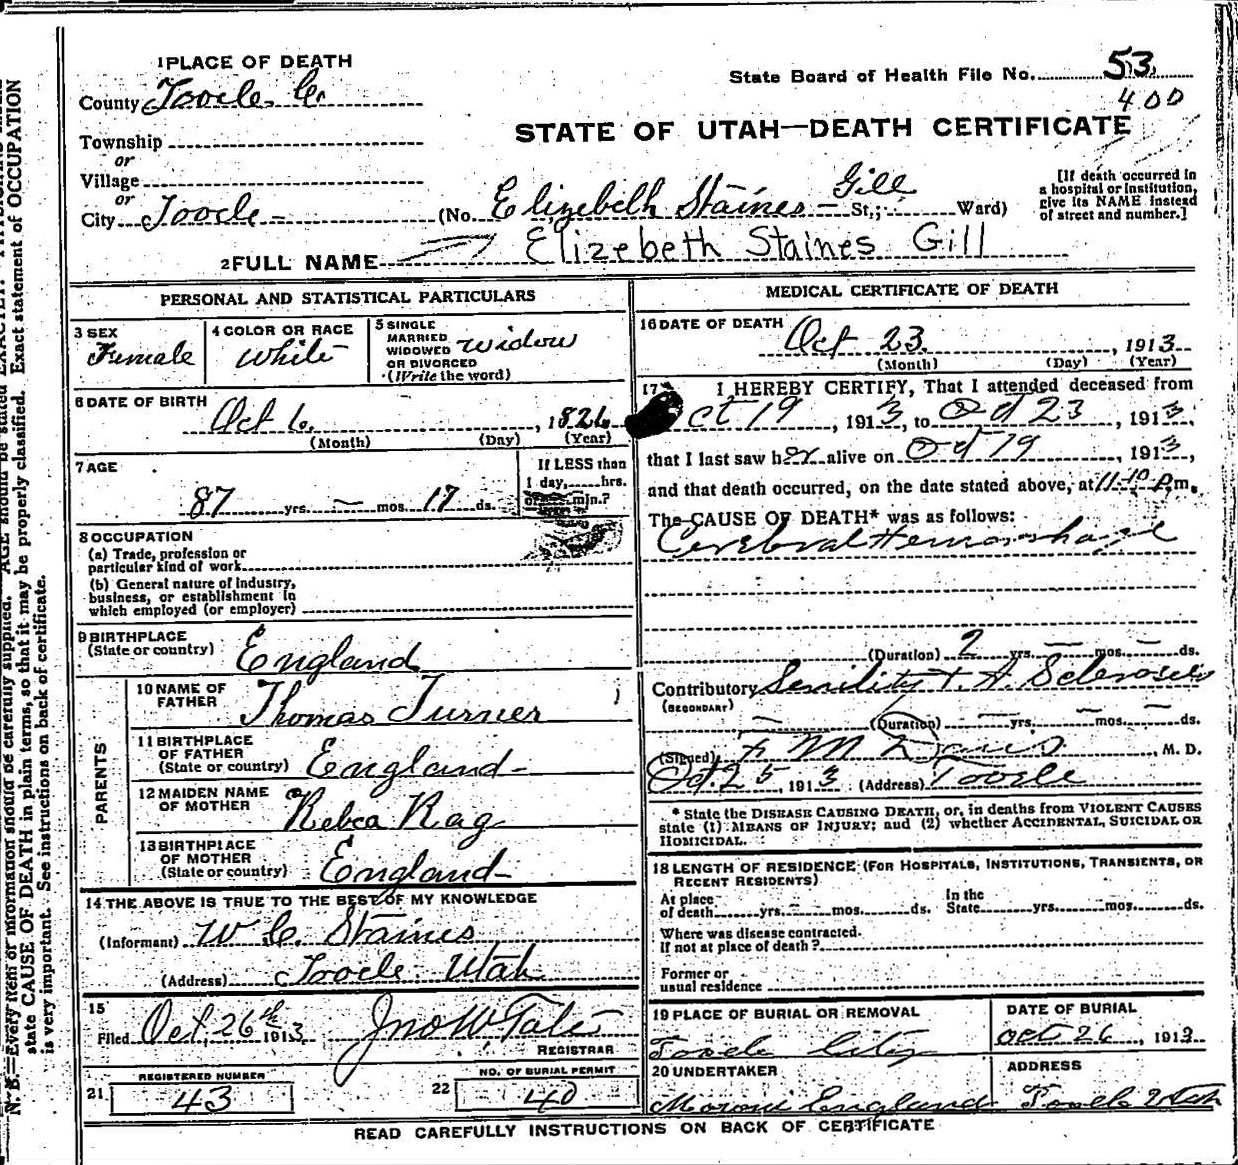 1 PLACE OF DEATH
County Tooele Co.
Township
or
Village
or
City Tooele -
State Board of Health File No. 53
400
STATE OF UTAH—DEATH CERTIFICATE
(No. Elizebeth Staines - Gill St.; Ward)
[If death occurred in
a hospital or institution,
give its NAME instead
of street and number.]
2 FULL NAME Elizebeth Staines Gill
PERSONAL AND STATISTICAL PARTICULARS
3 SEX
Female
4 COLOR OR RACE
White
5 SINGLE
MARRIED
WIDOWED
OR DIVORCED
(Write the word)
widow
6 DATE OF BIRTH
Oct 6, 1826
(Month) (Day) (Year)
7 AGE
87 yrs. — mos. 17 ds.
If LESS than
1 day, hrs.
or min.?
8 OCCUPATION
(a) Trade, profession or
particular kind of work
(b) General nature of industry,
business, or establishment in
which employed (or employer)
9 BIRTHPLACE
(State or country) England
PARENTS
10 NAME OF
FATHER Thomas Turner
11 BIRTHPLACE
OF FATHER
(State or country) England -
12 MAIDEN NAME
OF MOTHER Rebca Rag
13 BIRTHPLACE
OF MOTHER
(State or country) England -
14 THE ABOVE IS TRUE TO THE BEST OF MY KNOWLEDGE
(Informant) W C. Staines
(Address) Tooele Utah
15
Filed Oct, 26th 1913 Jno W Tate
REGISTRAR
21 REGISTERED NUMBER
43
22 NO. OF BURIAL PERMIT
40
MEDICAL CERTIFICATE OF DEATH
16 DATE OF DEATH
Oct 23. , 1913
(Month) (Day) (Year)
17 I HEREBY CERTIFY, That I attended deceased from
Oct 19, 1913, to Oct 23, 1913,
that I last saw her alive on Oct 19, 1913,
and that death occurred, on the date stated above, at 11-10 P.m.
The CAUSE OF DEATH* was as follows:
Cerebral Hemorrhage
(Duration) 2 yrs. — mos. — ds.
Contributory Senility + A. Sclerosis
(SECONDARY)
— (Duration) — yrs. — mos. — ds.
(Signed) F M Davis, M. D.
Oct. 25, 1913 (Address) Tooele
* State the DISEASE CAUSING DEATH, or, in deaths from VIOLENT CAUSES
state (1) MEANS OF INJURY; and (2) whether ACCIDENTAL, SUICIDAL OR
HOMICIDAL.
18 LENGTH OF RESIDENCE (FOR HOSPITALS, INSTITUTIONS, TRANSIENTS, OR
RECENT RESIDENTS)
At place
of death yrs. mos. ds.
In the
State yrs. mos. ds.
Where was disease contracted
If not at place of death?
Former or
usual residence
19 PLACE OF BURIAL OR REMOVAL
Tooele City
DATE OF BURIAL
Oct 26, 1913
20 UNDERTAKER
Moroni England
ADDRESS
Tooele Utah
READ CAREFULLY INSTRUCTIONS ON BACK OF CERTIFICATE
N. B.—Every item of information should be carefully supplied. AGE should be stated EXACTLY.
state CAUSE OF DEATH in plain terms, so that it may be properly classified. Exact statement of OCCUPATION
is very important. See instructions on back of certificate.